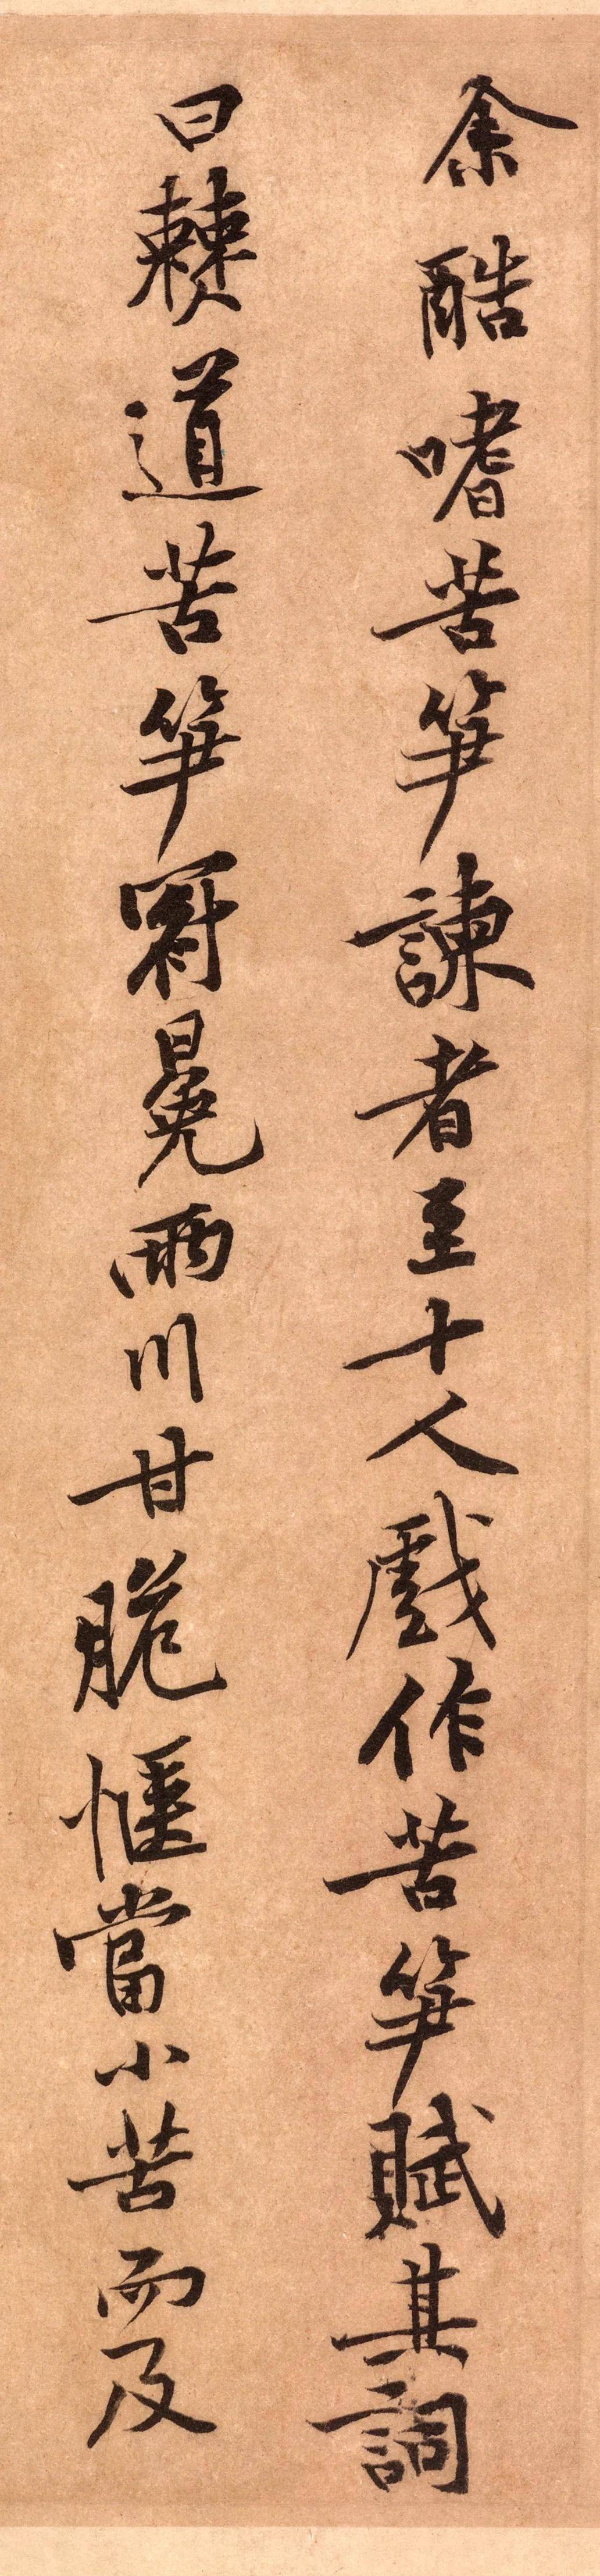 余酷嗜苦笋諫者至十人戲作苦笋賦其詞
曰僰道苦笋冠冕兩川甘脆愜當小苦而反